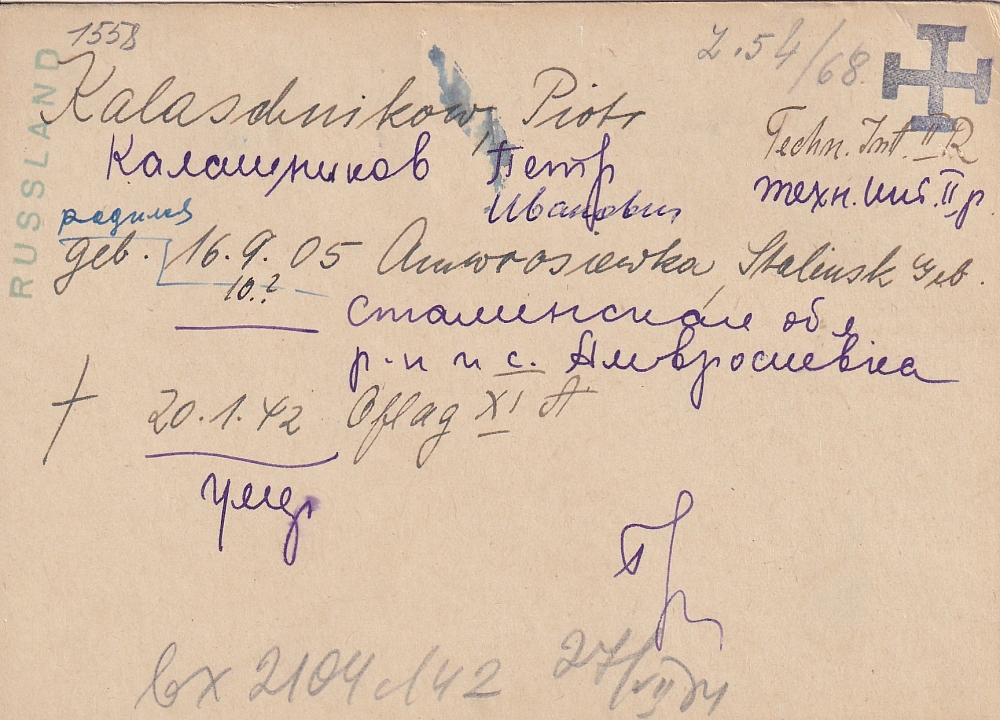 1558
Z. 54/68
RUSSLAND
Kalaschnikow, Piotr
Techn. Int. II R
Калашников Петр
Иванович
техн. инт. II р
родился
geb. 16.9.05 Amwrosiewka, Stalinsk Geb.
10.?
Сталинская обл
р-н и с. Амвросиевка
† 20.1.42 Oflag XI A
умер
вх 2104с/42